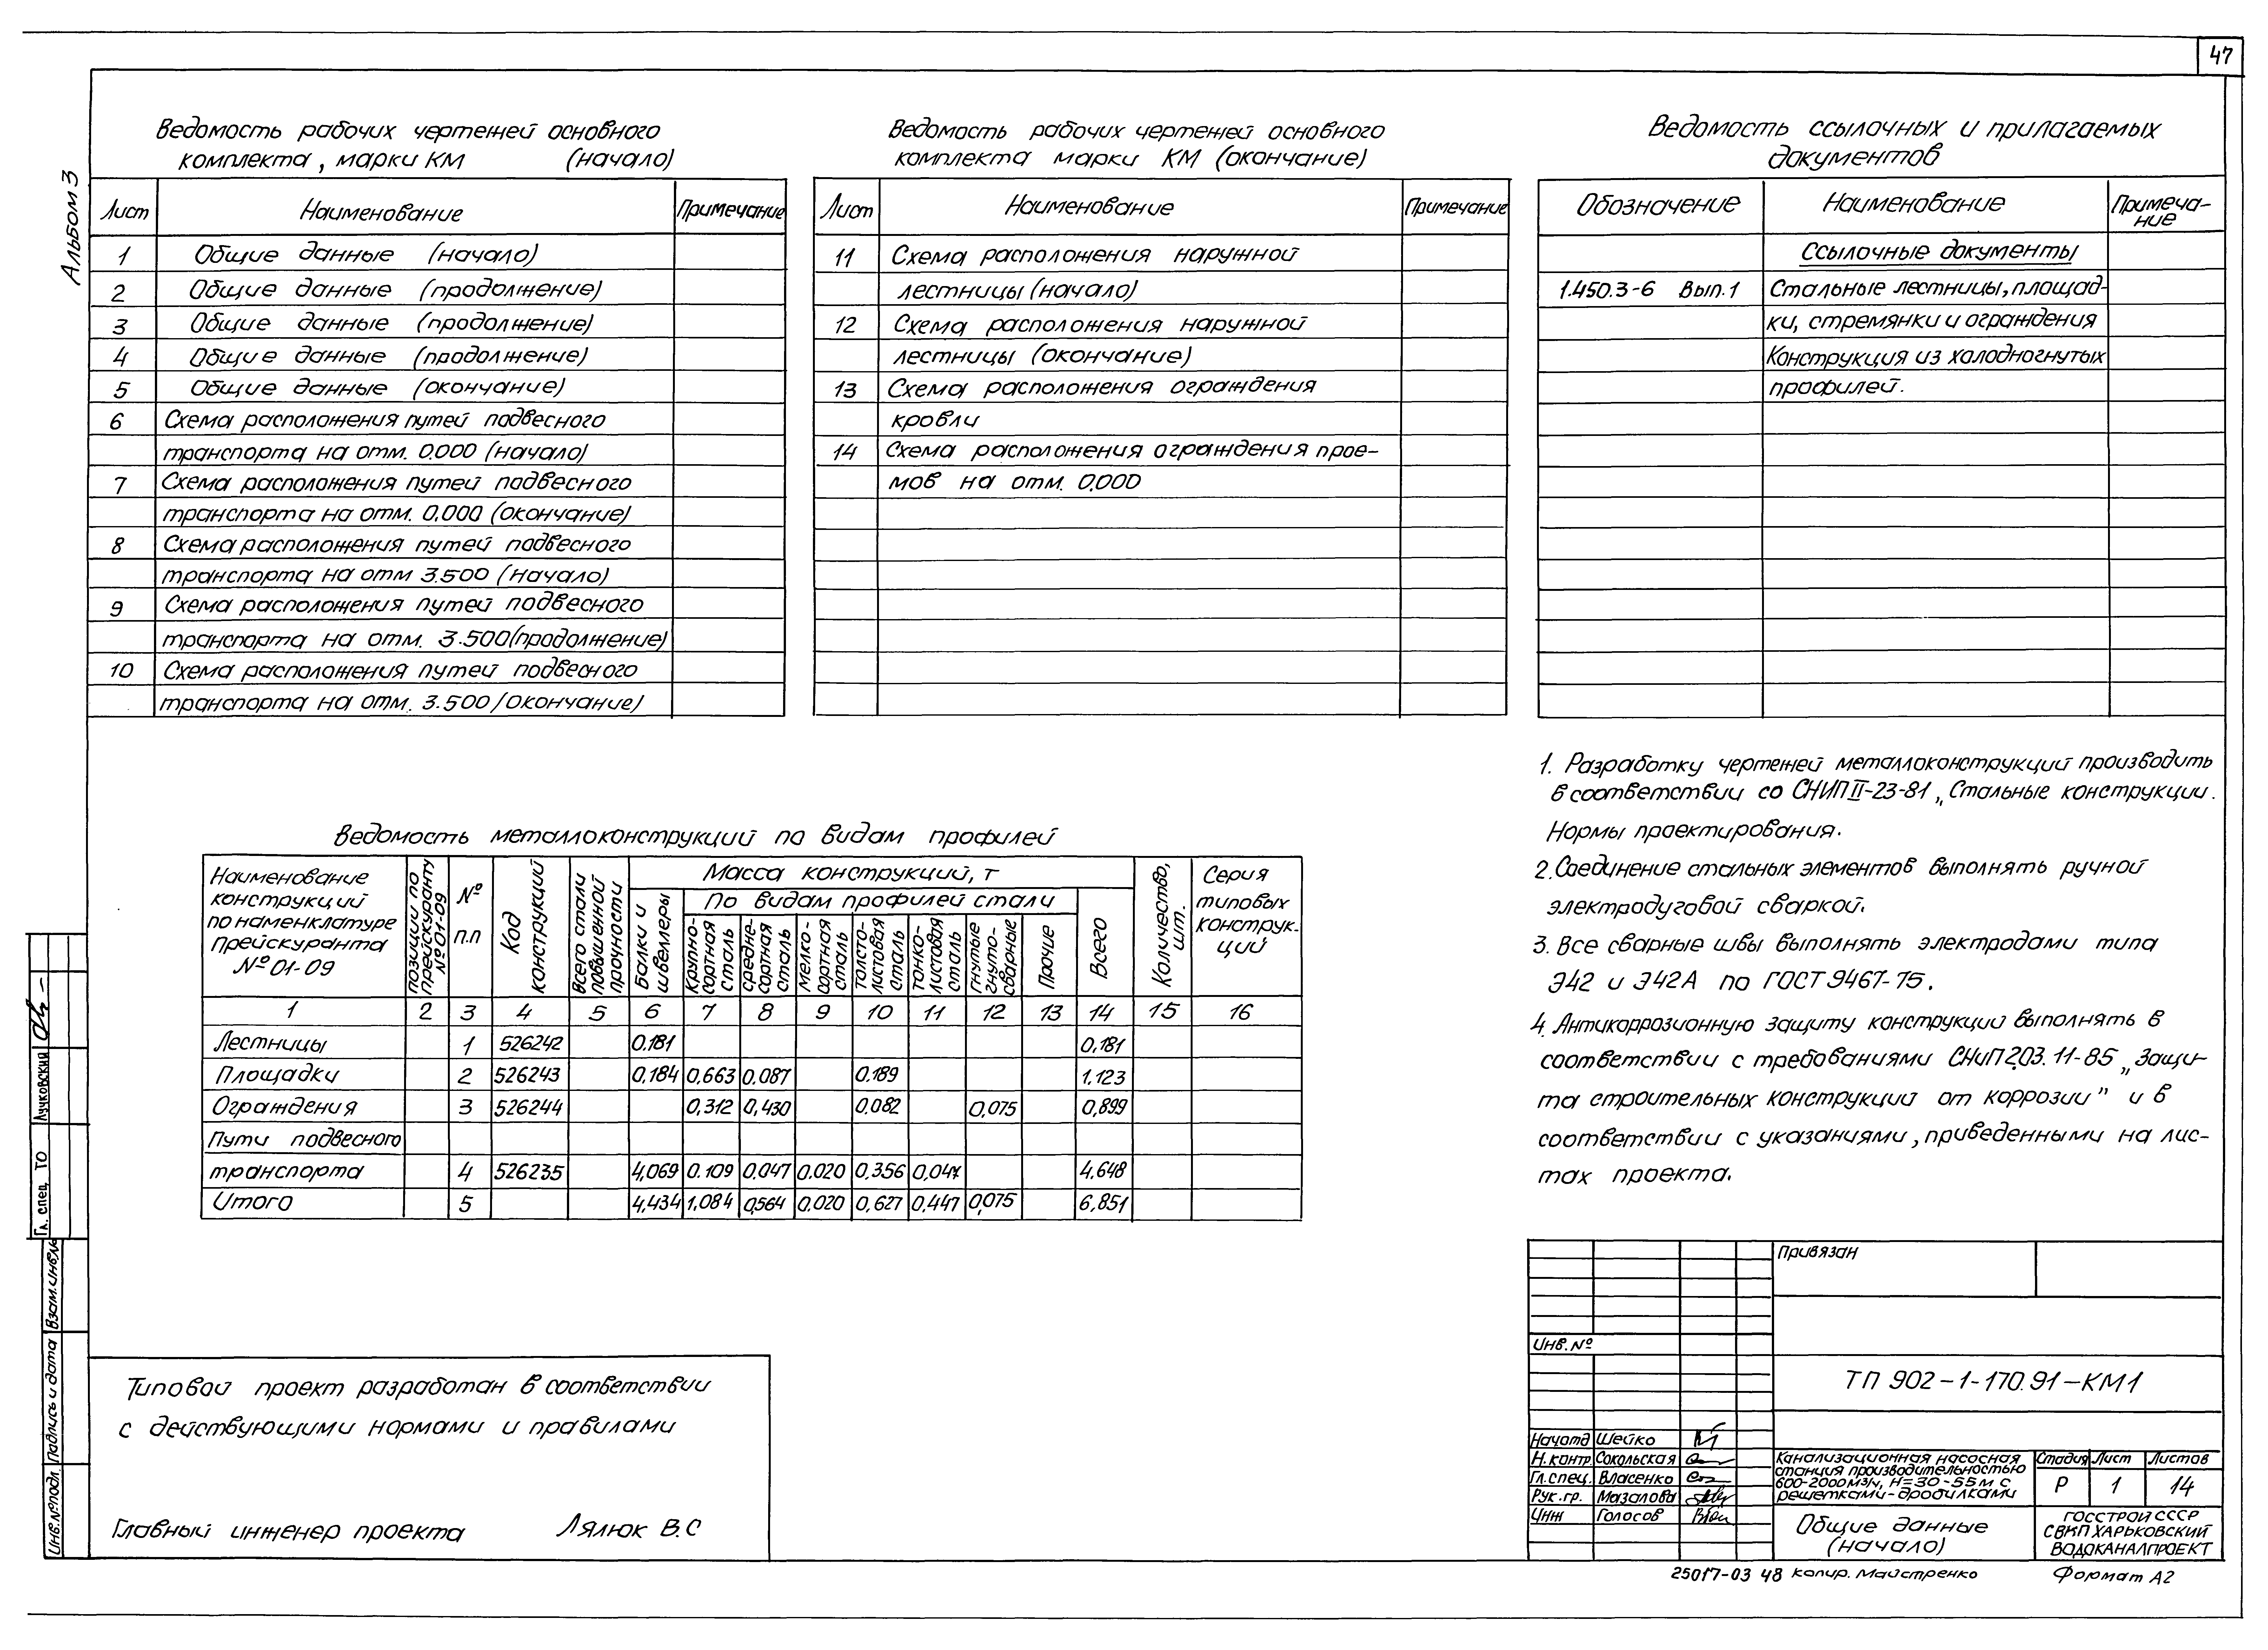 47
Альбом 3
Ведомость рабочих чертежей основного
комплекта, марки КМ (начало)
Лист Наименование Примечание
1 Общие данные (начало)
2 Общие данные (продолжение)
3 Общие данные (продолжение)
4 Общие данные (продолжение)
5 Общие данные (окончание)
6 Схема расположения путей подвесного
транспорта на отм. 0.000 (начало)
7 Схема расположения путей подвесного
транспорта на отм. 0,000 (окончание)
8 Схема расположения путей подвесного
транспорта на отм 3.500 (начало)
9 Схема расположения путей подвесного
транспорта на отм. 3.500 (продолжение)
10 Схема расположения путей подвесного
транспорта на отм. 3.500 (окончание)
Ведомость рабочих чертежей основного
комплекта марки КМ (окончание)
Лист Наименование Примечание
11 Схема расположения наружной
лестницы (начало)
12 Схема расположения наружной
лестницы (окончание)
13 Схема расположения ограждения
кровли
14 Схема расположения ограждения прое-
мов на отм. 0,000
Ведомость ссылочных и прилагаемых
документов
Обозначение Наименование Примеча-
ние
Ссылочные документы
1.450.3-6 Вып.1 Стальные лестницы, площад-
ки, стремянки и ограждения
Конструкция из холодногнутых
профилей.
1. Разработку чертежей металлоконструкций производить
в соответствии со СНИП II-23-81 „Стальные конструкции.
Нормы проектирования.
2. Соединение стальных элементов выполнять ручной
электродуговой сваркой.
3. Все сварные швы выполнять электродами типа
Э42 и Э42А по ГОСТ 9467-75.
4. Антикоррозионную защиту конструкций выполнять в
соответствии с требованиями СНиП 2.03.11-85 „Защи-
та строительных конструкций от коррозии" и в
соответствии с указаниями, приведенными на лис-
тах проекта.
Ведомость металлоконструкций по видам профилей
Наименование
конструкций
по наменклатуре
Прейскуранта
№ 01-09
позиции по
прейскуранту
№ 01-09
№
п.п
Код
конструкций
Всего стали
повышенной
прочности
Масса конструкций, т
Балки и
швеллеры
По видам профилей стали
Крупно-
сортная
сталь
средне-
сортная
сталь
мелко-
сортная
сталь
толсто-
листовая
сталь
тонко-
листовая
сталь
гнутые
гнуто-
сварные
Прочие
Всего
Количество,
шт.
Серия
типовых
конструк-
ций
1 2 3 4 5 6 7 8 9 10 11 12 13 14 15 16
Лестницы 1 526242 0.181 0,181
Площадки 2 526243 0,184 0,663 0.087 0.189 1.123
Ограждения 3 526244 0,312 0,430 0.082 0,075 0,899
Пути подвесного
транспорта 4 526235 4,069 0.109 0.047 0.020 0,356 4.648
Итого 5 4,434 1,084 0,564 0.020 0,627 0.447 0,075 6,851
Типовой проект разработан в соответствии
с действующими нормами и правилами
Главный инженер проекта Лялюк В.С
Гл. спец. ТО Лучковский
Инв.№подл Подпись и дата Взам.инв.№
Привязан
Инв.№
ТП 902-1-170.91-КМ1
Начотд Шейко
Н.контр. Сокольская
Гл.спец. Власенко
Рук.гр. Мазалова
Инж Голосов
Канализационная насосная
станция производительностью
600-2000 м3/ч, Н=30-55м с
решетками-дробилками
Стадия Лист Листов
Р 1 14
Общие данные
(начало)
ГОССТРОЙ СССР
СВКП ХАРЬКОВСКИЙ
ВОДОКАНАЛПРОЕКТ
25017-03 48 Копир. Майстренко Формат А2